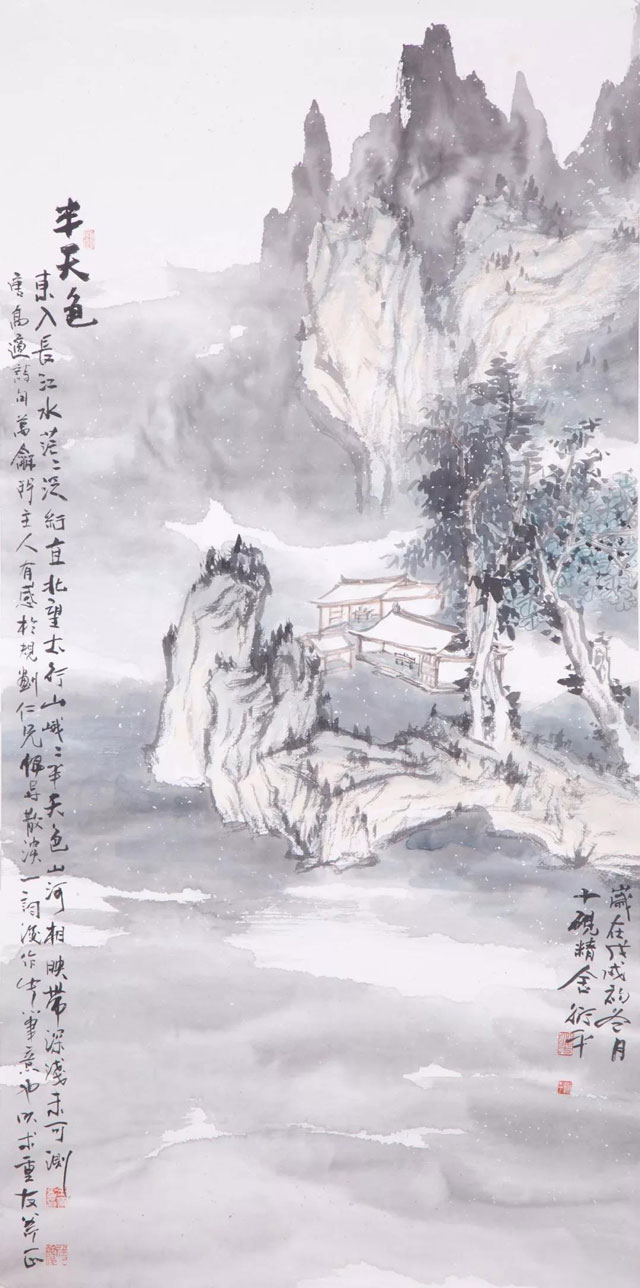 半天色
東入長江水茫〻泛紆直北望太行山峨〻半天色山河相映帶深淺未可測
唐高適詩句萬龢軒主人有感於硯仁兄散淡一詞後作筆意也以求重友斧正
歲在戊戌初冬月
十硯精舍衍平